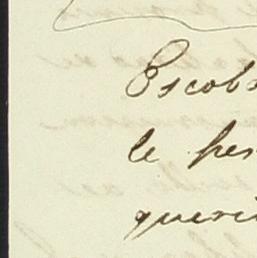 Escob
le pes
queri